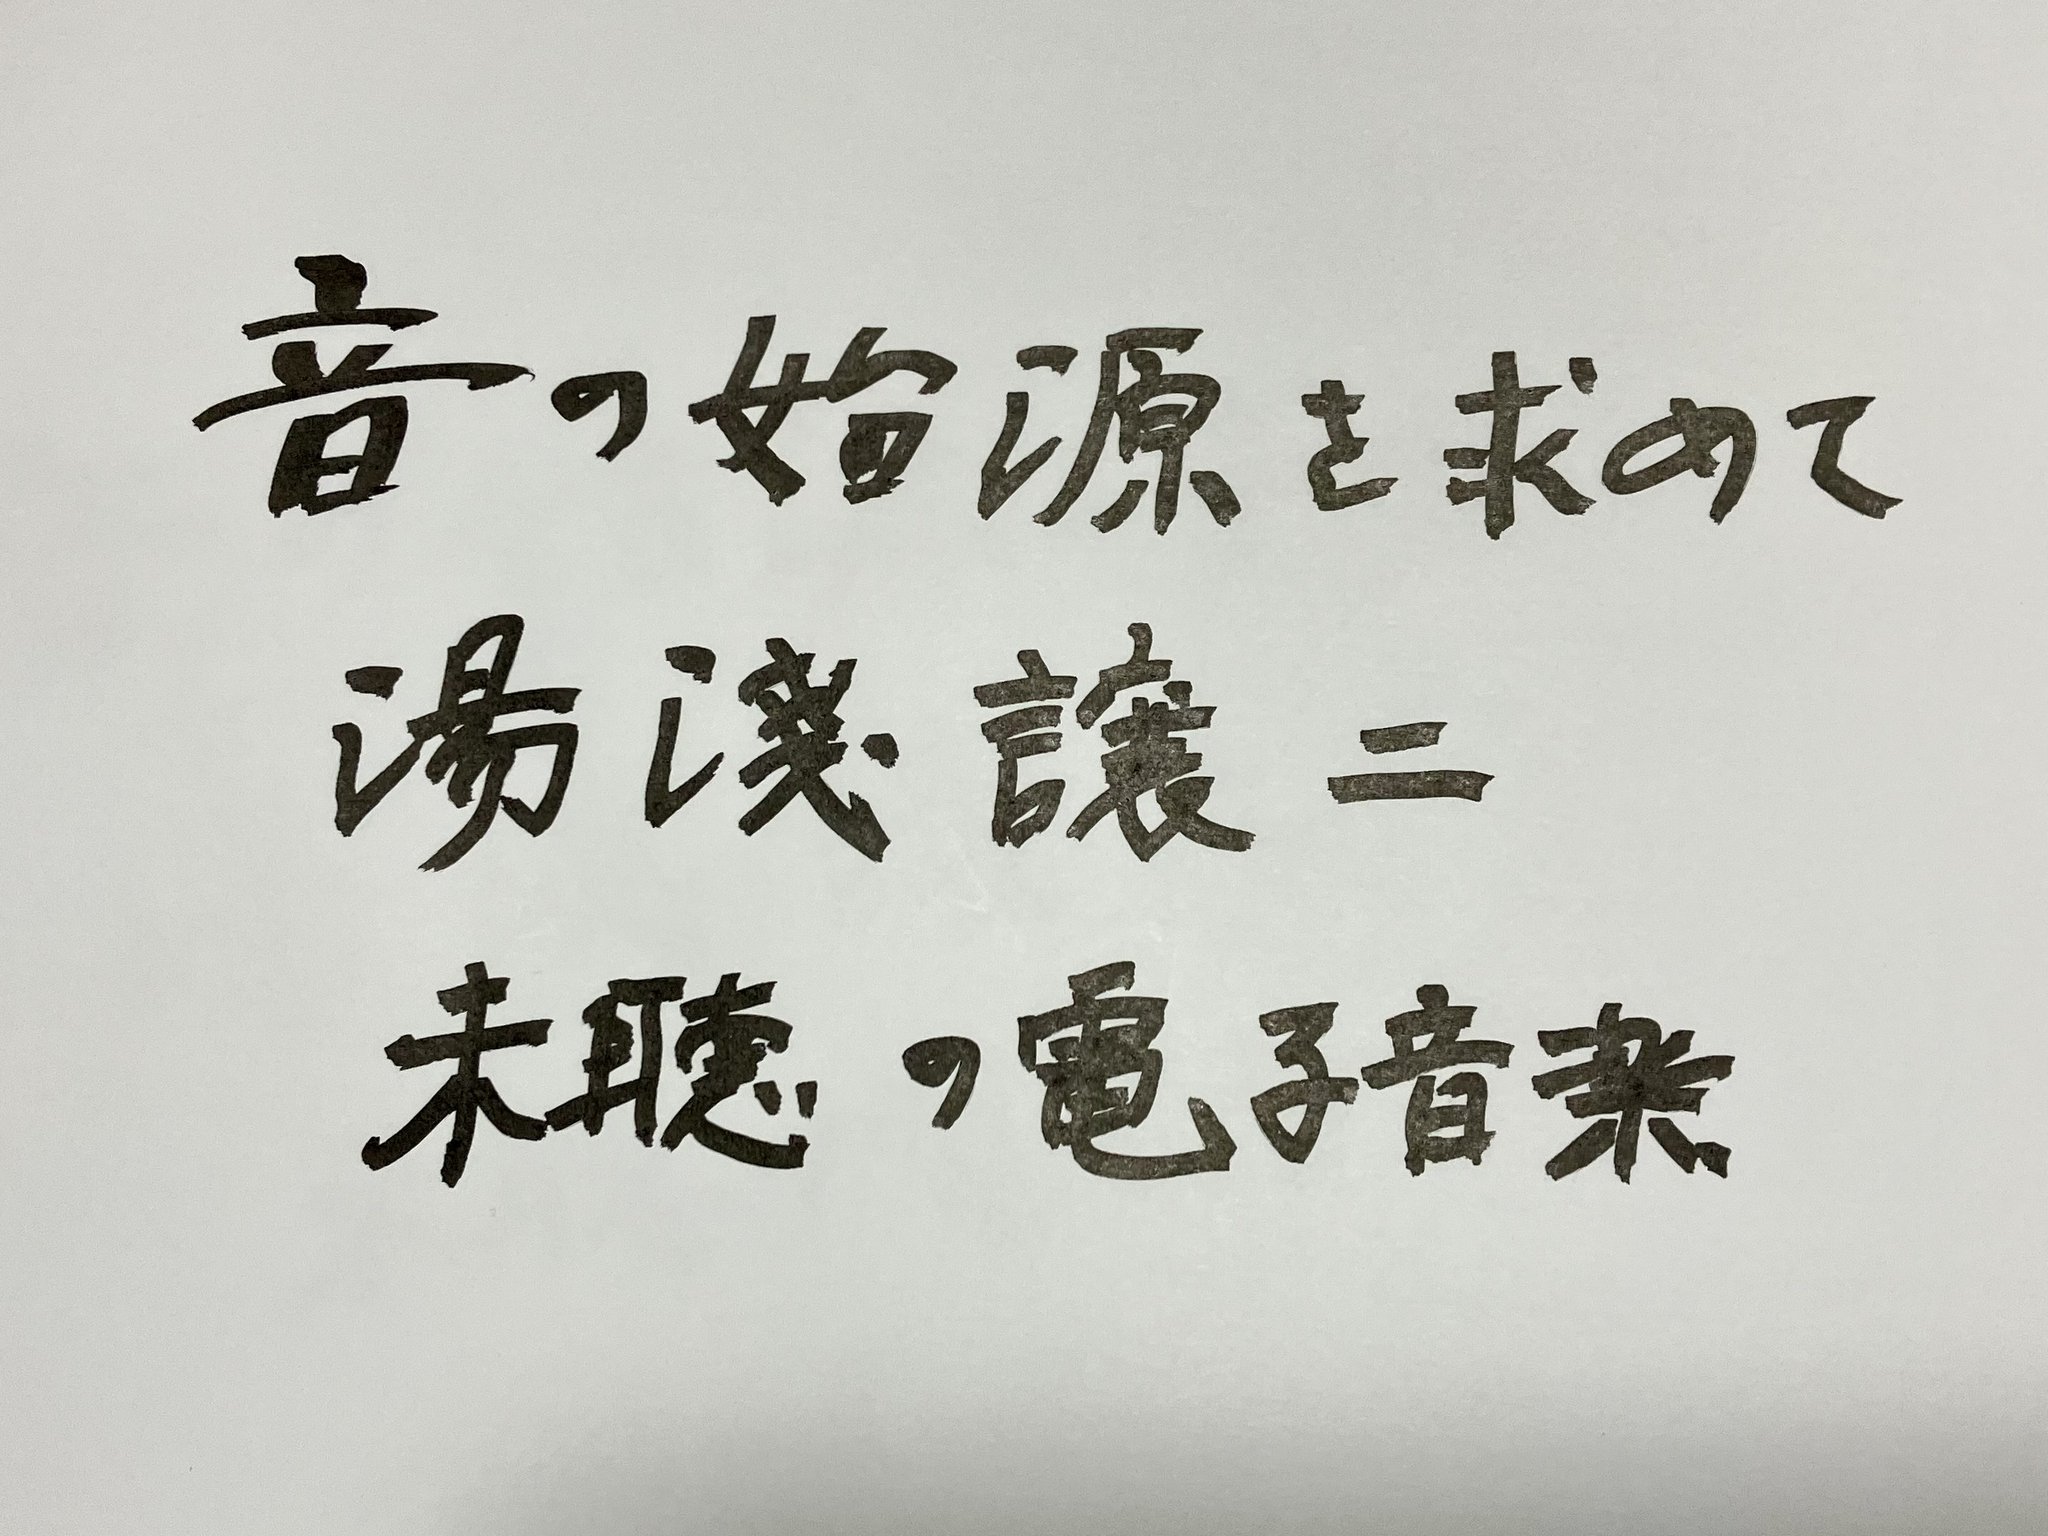 音の始源を求めて
湯淺譲二
未聴の電子音楽